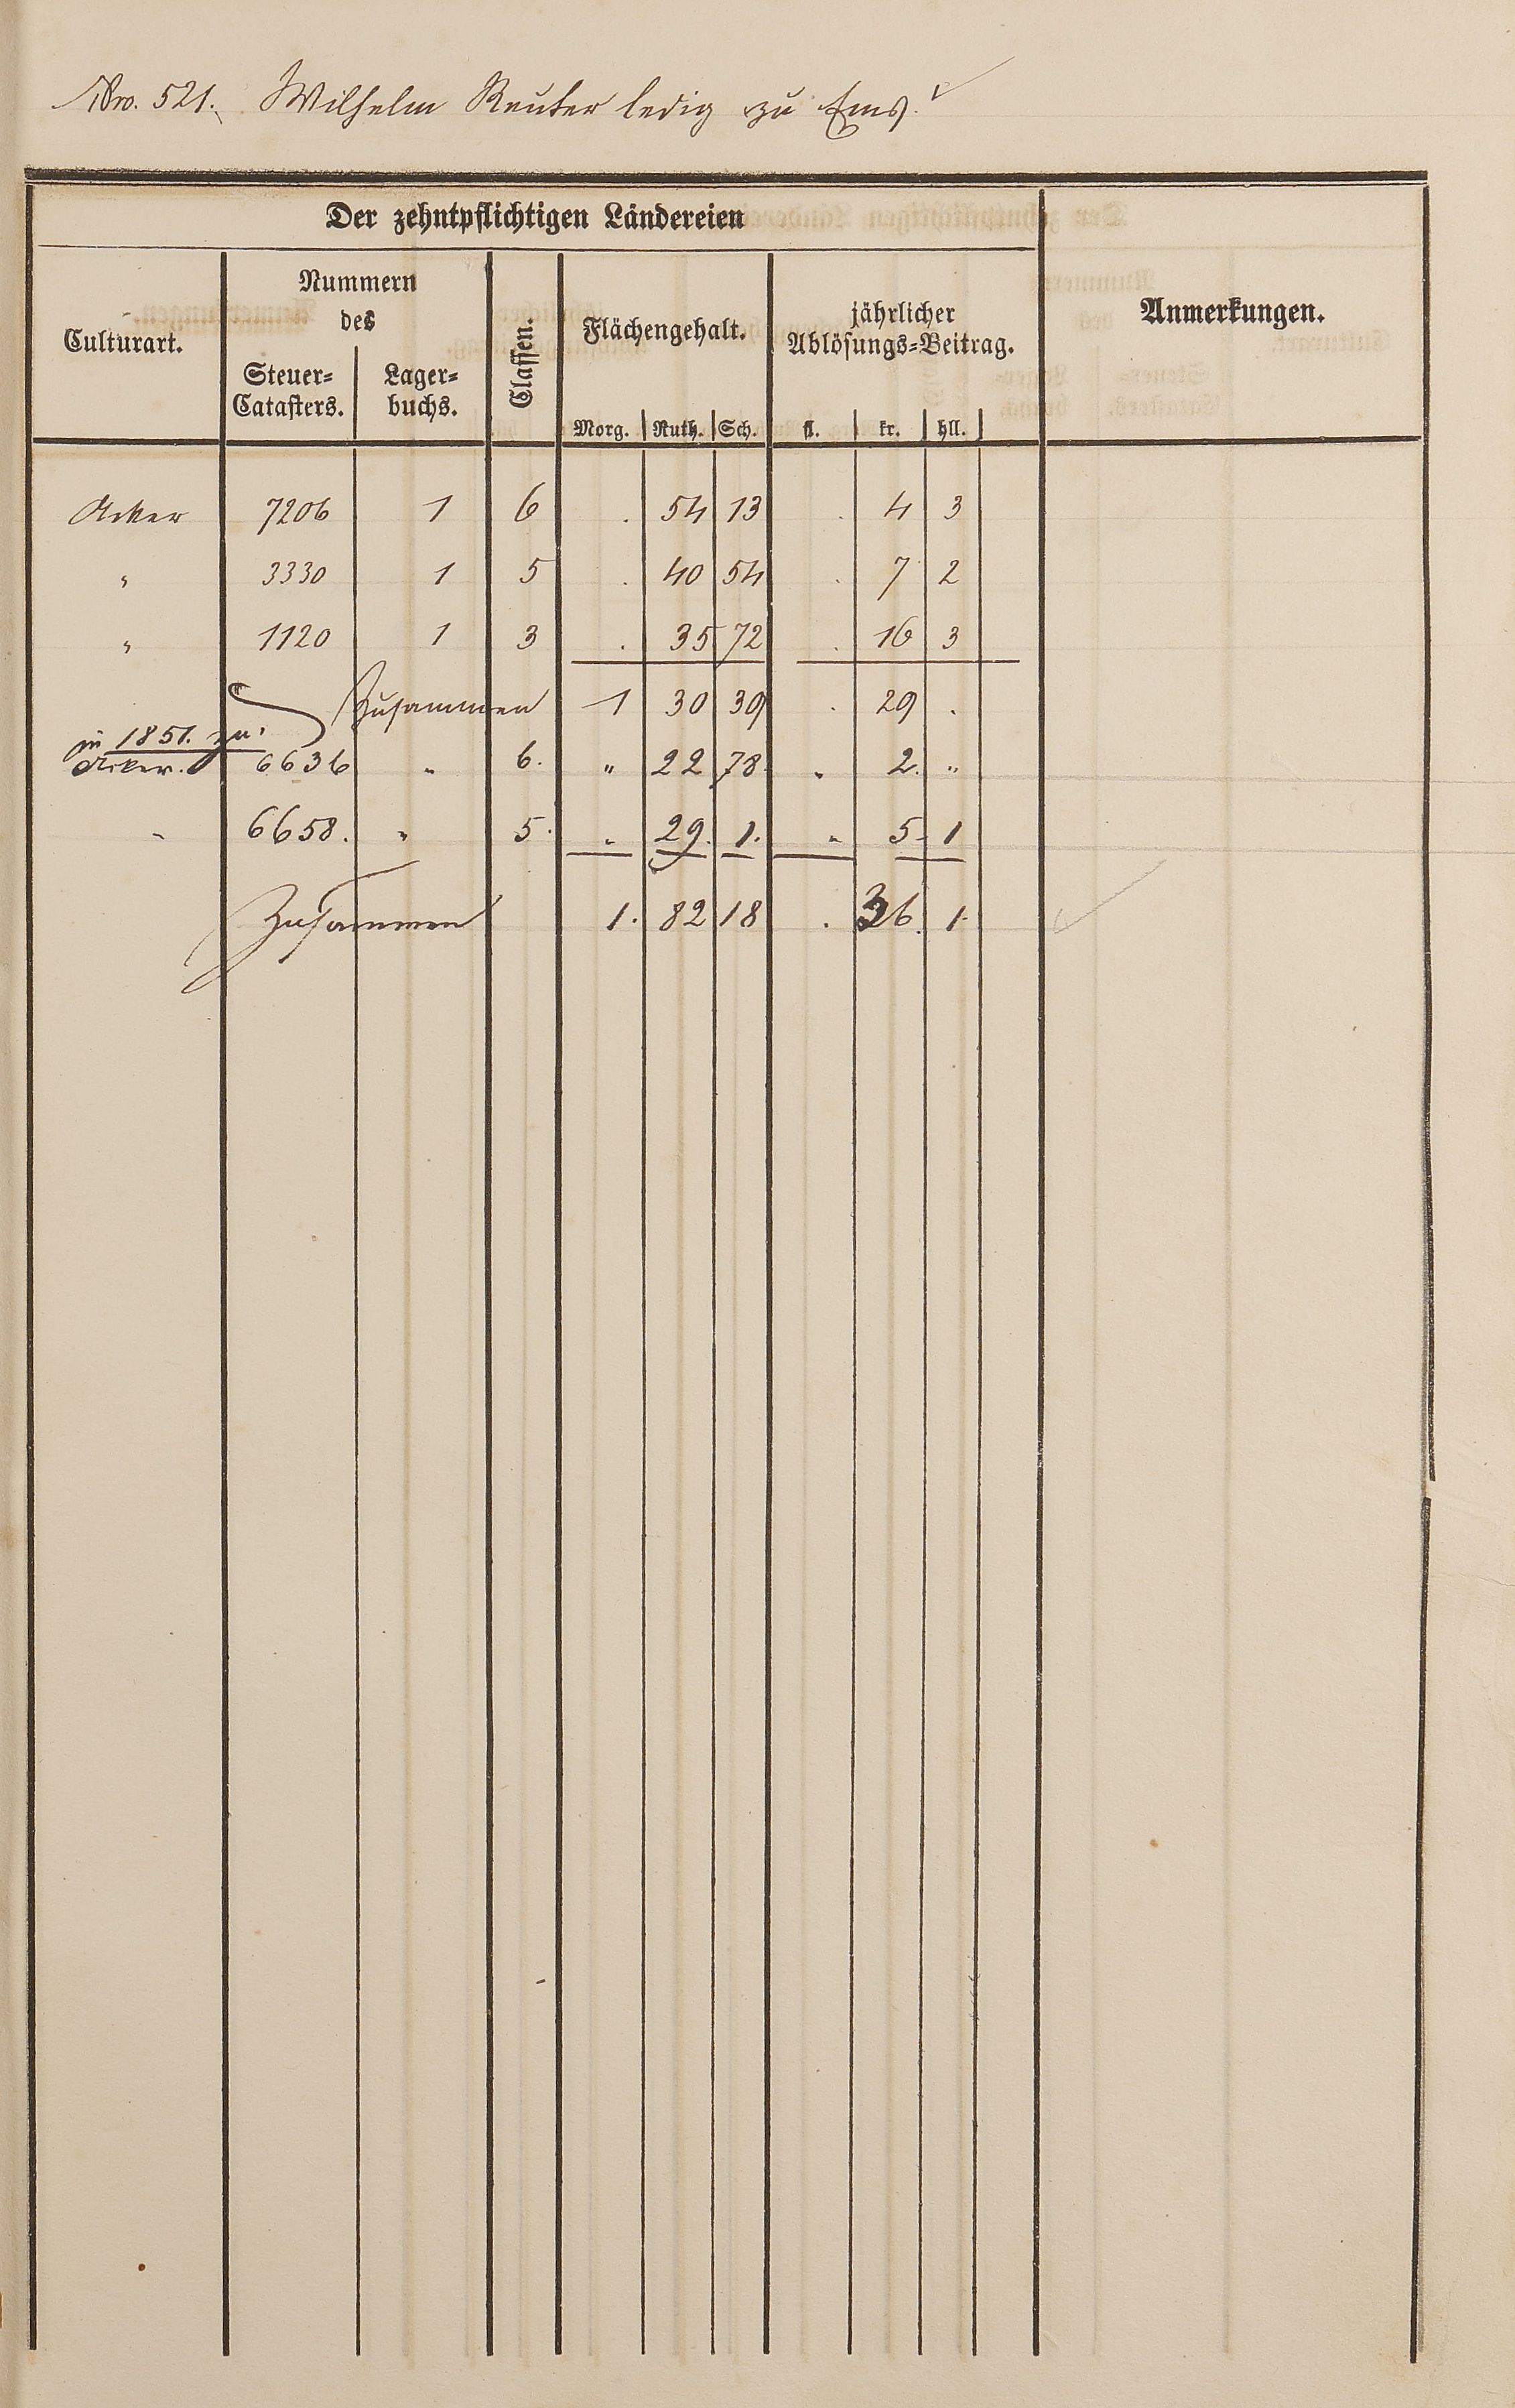 Nro. 521. Wilhelm Reuter ledig zu Ems.
Der zehntpflichtigen Ländereien
Culturart.
Nummern
des
Steuer=
Catasters.
Lager=
buchs.
Classen.
Flächengehalt.
Morg. Ruth. Sch.
jährlicher
Ablösungs=Beitrag.
fl. kr. hll.
Anmerkungen.
Acker 7206 1 6 . 54 13 . 4 3
" 3330 1 5 . 40 54 . 7 2
" 1120 1 3 . 35 72 . 16 3
Zusammen 1 30 39 . 29 .
in 1851. zu:
Acker. 6636 " 6. " 22 78. " 2. "
" 6658. " 5. " 29. 1. " 5 1
Zusammen 1. 82 18 . 36. 1.